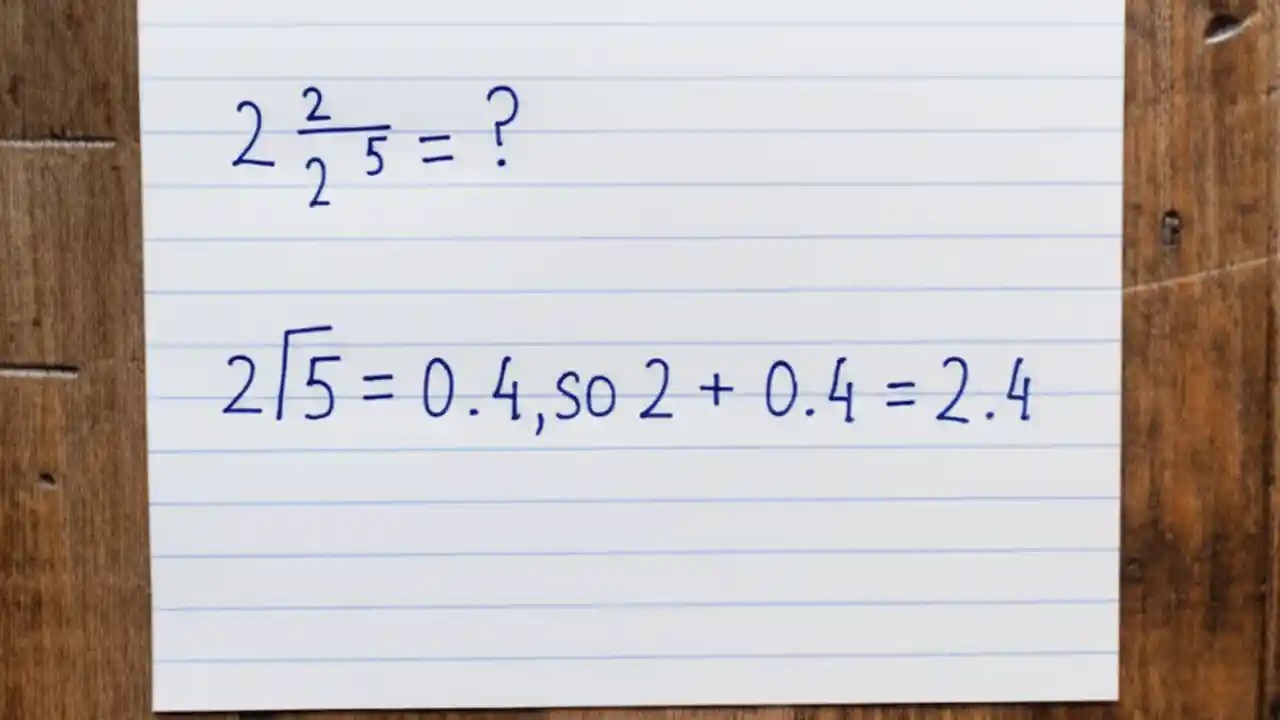 2 2/2 5 = ?
2√5 = 0.4, so 2 + 0.4 = 2.4